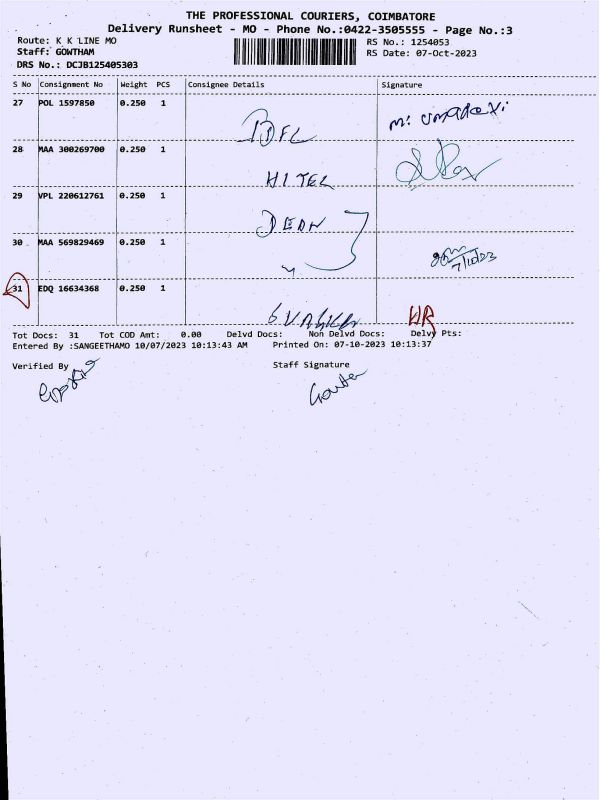 THE PROFESSIONAL COURIERS, COIMBATORE
Delivery Runsheet - MO - Phone No.:0422-3505555 - Page No.:3
Route: K K LINE MO RS No.: 1254053
Staff: GOWTHAM RS Date: 07-Oct-2023
DRS No.: DCJB125405303
S No Consignment No Weight PCS Consignee Details Signature
27 POL 1597850 0.250 1
DFL
28 MAA 300269700 0.250 1
HITEL
29 VPL 220612761 0.250 1
30 MAA 569829469 0.250 1
7/10/23
31 EDQ 16634368 0.250 1
Tot Docs: 31 Tot COD Amt: 0.00 Delvd Docs: Non Delvd Docs: Delvy Pts:
Entered By :SANGEETHAMO 10/07/2023 10:13:43 AM Printed On: 07-10-2023 10:13:37
Verified By Staff Signature